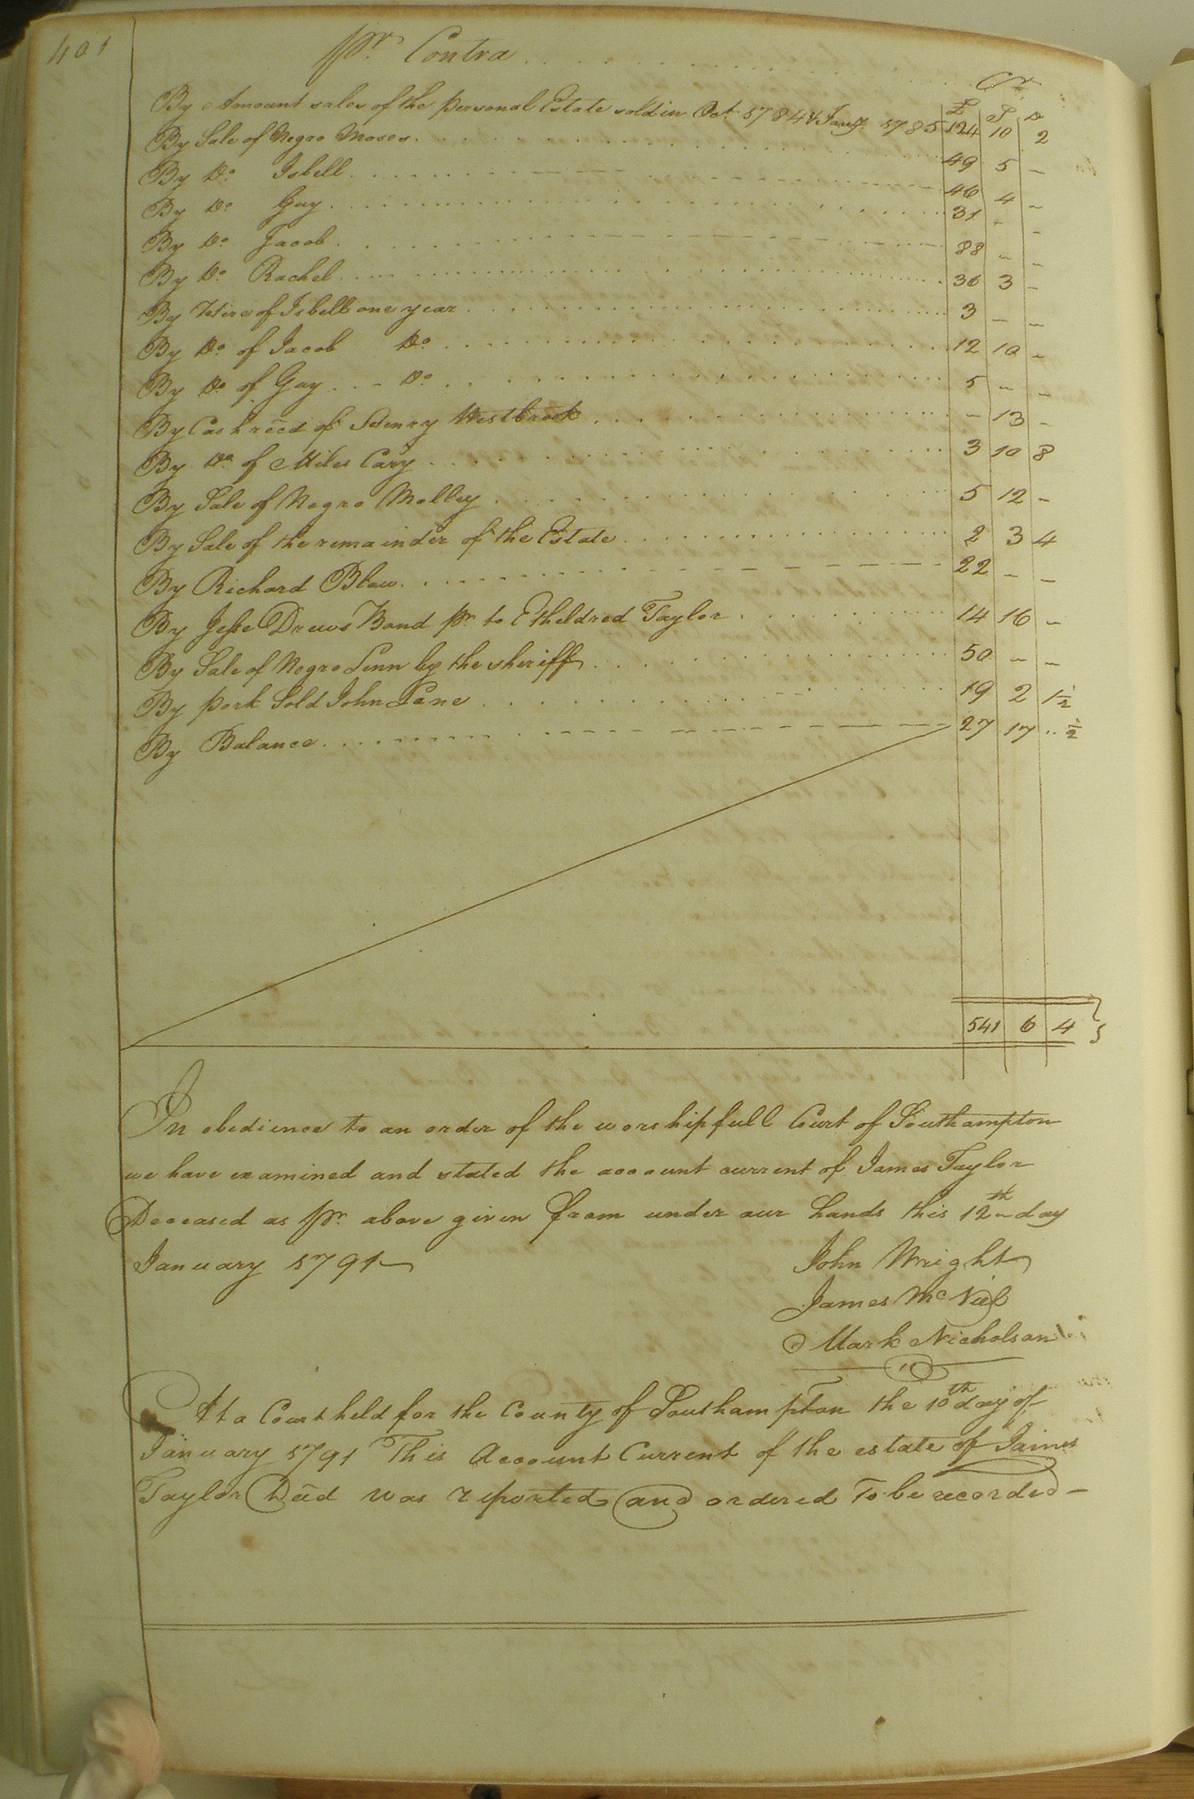 401
pr. Contra Cr.
£ S D
By Amount sales of the personal Estate sold in Oct 1784 & Jany 1785 124 10 2
By Sale of Negro Moses 49 5 –
By Do. Isbell 46 4 –
By Do. Gay 31 – –
By Do. Jacob 88 – –
By Do. Rachel 36 3 –
By Hire of Isbell one year 3 – –
By Do. of Jacob Do. 12 10 –
By Do. of Gay Do. 5 – –
By Cash recd of Henry Westbrook – 13 –
By Do. of Miles Cary 3 10 8
By Sale of Negro Molley 5 12 –
By Sale of the remainder of the Estate 2 3 4
By Richard Blow 22 – –
By Jesse Drews Bond pr. to Etheldred Taylor 14 16 –
By Sale of Negro Penn by the sheriff 50 – –
By pork Sold John Lane 19 2 1½
By Balance 27 17 .. ½
541 6 4
In obedience to an order of the worshipfull Court of Southampton
we have examined and stated the account current of James Taylor
Deceased as pr. above given from under our hands this 12th day
January 1791
John Wright
James McNiel
Mark Nicholson
At a Court held for the County of Southampton the 10th day of
January 1791 This Account Current of the estate of James
Taylor Decd was reported and ordered To be recorded –